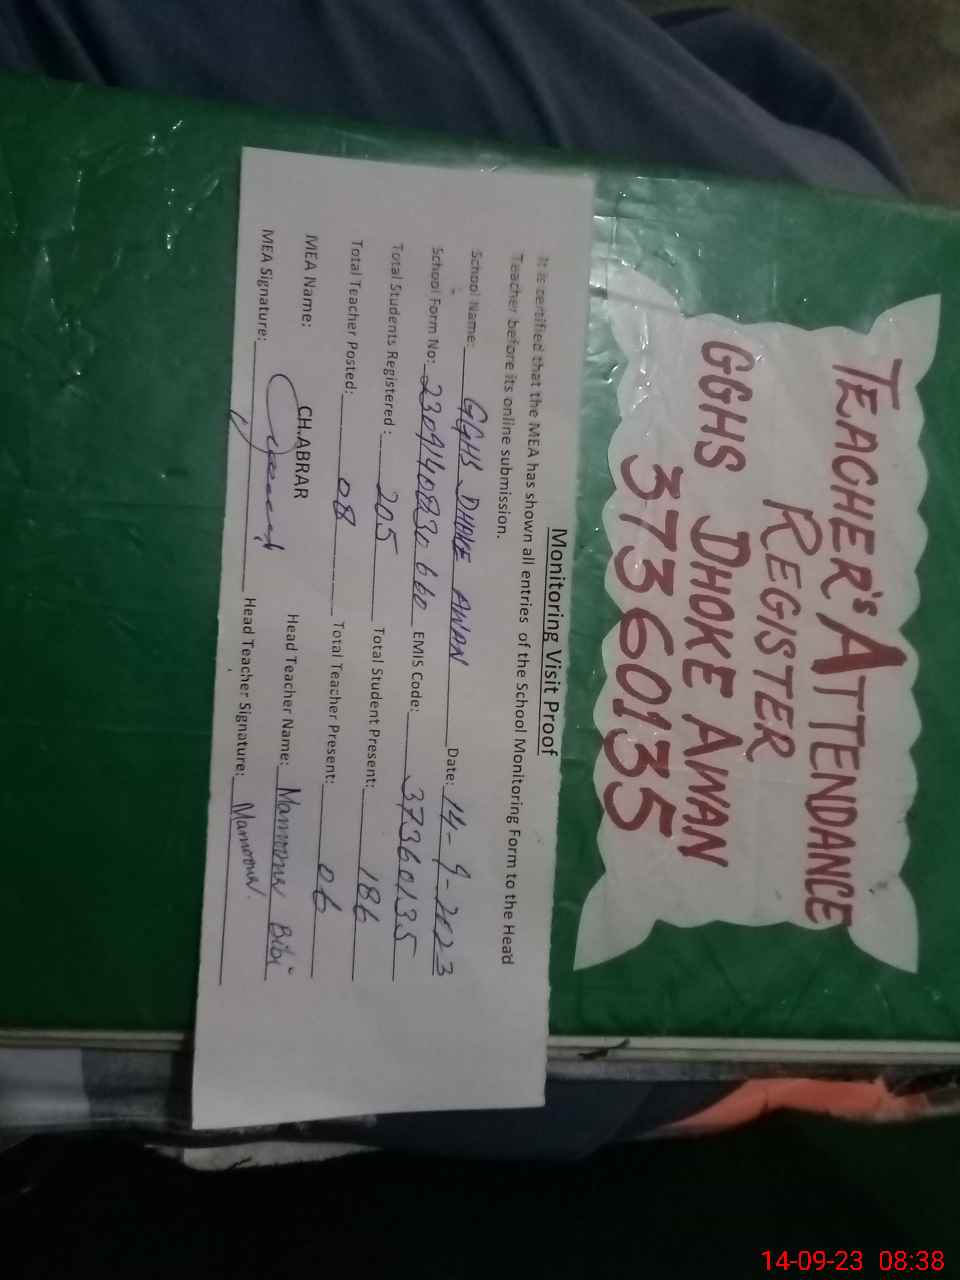 TEACHER'S ATTENDANCE
REGISTER
GGHS DHOKE AWAN
37360135
Monitoring Visit Proof
It is certified that the MEA has shown all entries of the School Monitoring Form to the Head
Teacher before its online submission.
School Name: GGHS DHOKE AWAN Date: 14-9-2023
School Form No: 2309140830660 EMIS Code: 37360135
Total Students Registered: 205 Total Student Present: 186
Total Teacher Posted: 08 Total Teacher Present: 06
MEA Name: CH.ABRAR Head Teacher Name: Mamoona Bibi
MEA Signature: Head Teacher Signature: Mamoona
14-09-23 08:38